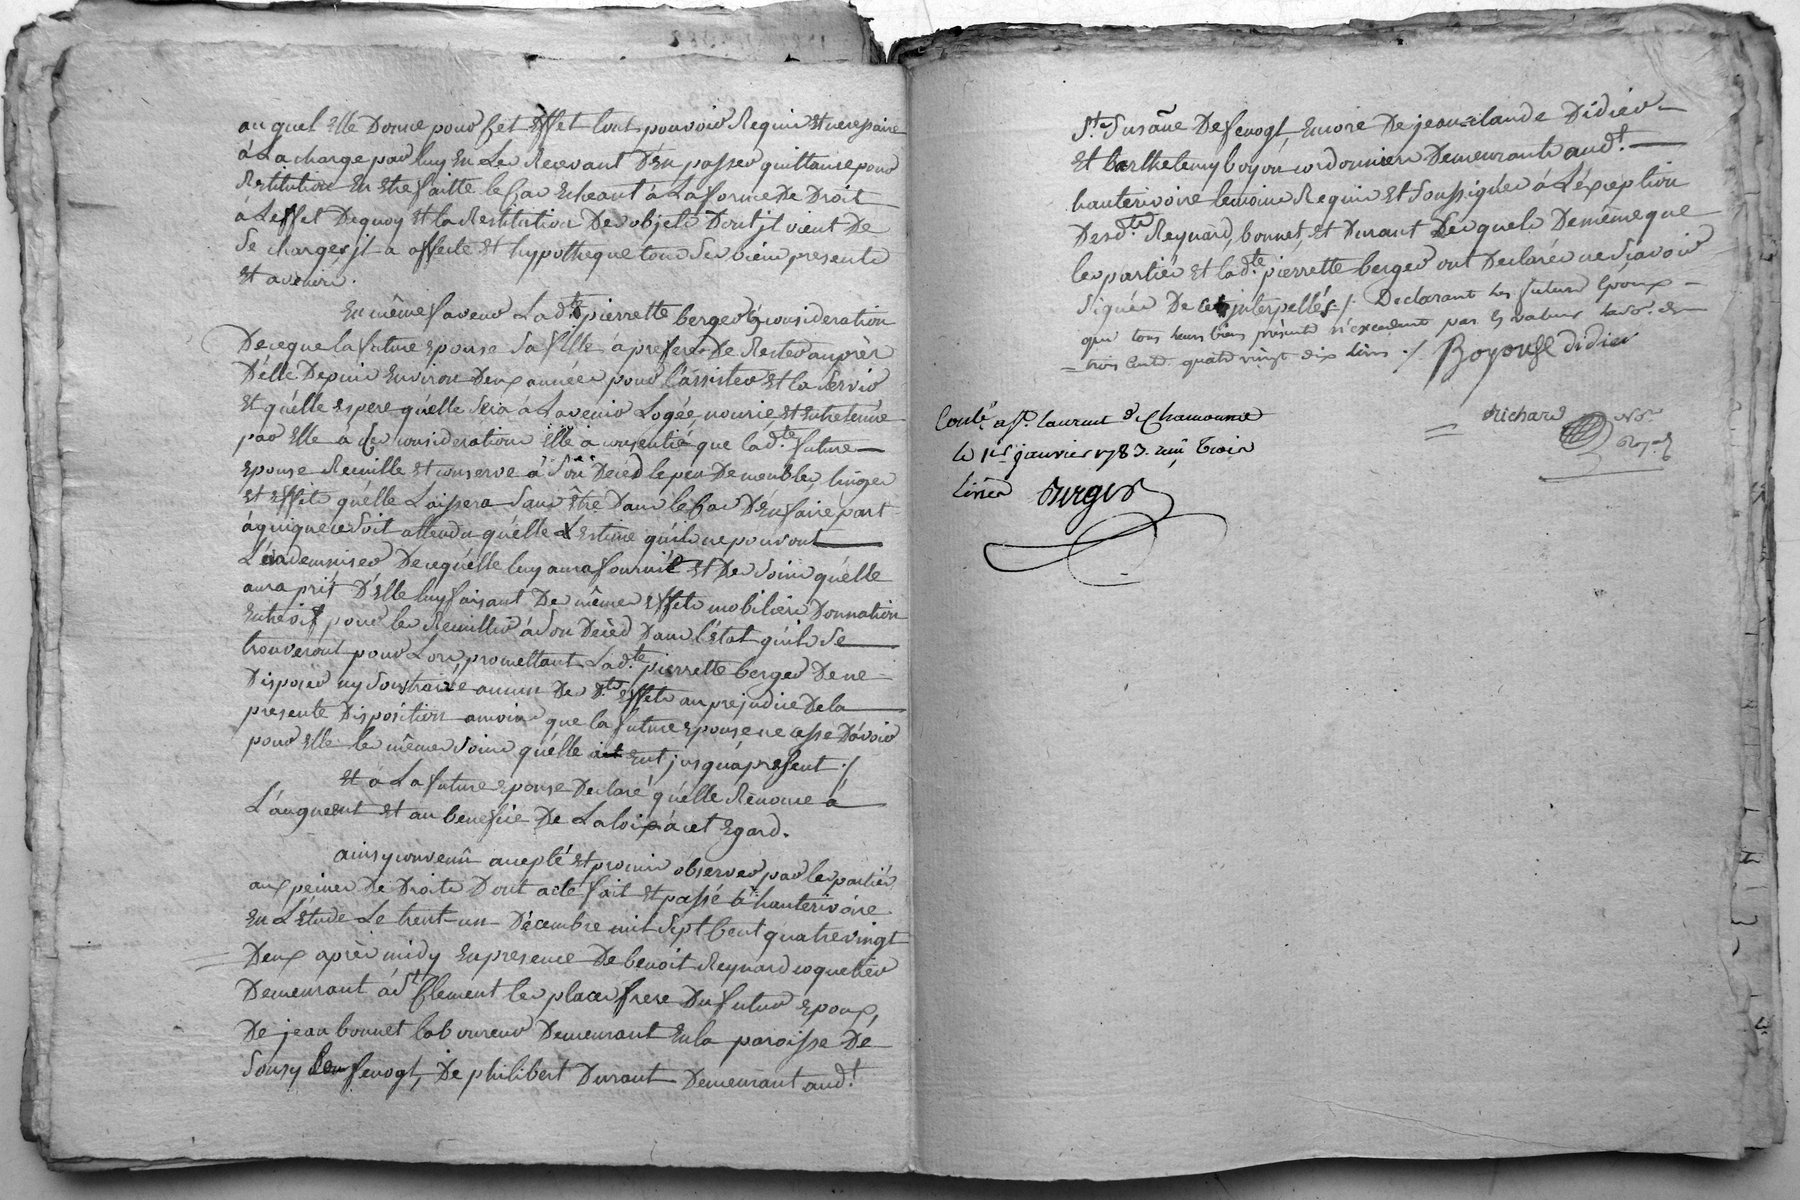 auquel Elle Donne pour Cet Effet tout pouvoir Requis Et necessaire
à La charge par luy En Les Recevant D'En passer quittance pour
Restitution En Etre faitte le Cas Echeant à La forme De Droit
à L'effet Dequoy Et la Restitution Des objets Dont jl vient De
Se charger jl a affecté Et hypotheque tous Ses biens presents
Et avenirs.
En même faveur Lad.te pierrette berger Consideration
De ce que la future Epouse Sa fille a preferé De Rester auprès
D'elle Depuis Environ Deux années pour l'assister Et la Servir
Et qu'elle Espere qu'elle Sera à L'avenir Logée nourrie Et Entretenue
par Elle à Ces considerations Elle a consentie que lad.te future
Epouse Recuille Et conserve à Son Decéd le peu De meubles, linges
Et Effets qu'elle Laissera Sans être Dans le Cas D'En faire part
à qui que ce Soit attendu qu'elle Estime qu'ils ne pourront
L'indemniser De ce qu'elle luy aura fournit Et Des Soins qu'elle
aura prit D'Elle luy faisant De mêmes Effets mobiliers Donnation
Entrevif pour les Recuillir à Son Decèd Dans l'état qu'ils Se
trouveront pour Lors, promettant Lad.te pierrette berger De ne
Disposer ny Soustraire aucuns De Dts Effets au prejudice De la
presente Disposition amoins que la future Epouse ne cesse D'avoir
pour Elle les mêmes Soins qu'elle a Eut jusqu'apresent ./.
Et a La future Epouse Declaré qu'elle Renonce à
L'augment Et au benefice De La loix à cet Egard.
ainsy convenû accepté Et promis observer par les partiés
aux peines De Droits Dont acte fait Et passé à hauterivoire
En L'Etude Le trent-un Décembre mil Sept Cent quatrevingt
Deux après midy En presence De benoit Reynard coquetier
Demeurant à S.t Clement les places frere Du futur Epoux,
De jean bonnet laboureur Demeurant En la paroisse De
Sousy, De philibert Durant Demeurant aud.t
S.te Susãne Encore De jean claude Didier
Et barthelemy boyon cordonniers Demeurants aud.t
hauterivoire temoins Requis Et Soussignés à L'éxeption
Desd.ts Reynard, bonnet, Et Durant Lesquels De même que
les partiés Et lad.te pierrette berger ont Declarés ne Sçavoir
Signer De ce jnterpellés ./. Declarant les futurs Epoux
que tous leurs biens présents n'excedent pas la valeur de
trois Cents quatre vingt dix livres ./. Boyon didier
Richard
Contr.é a S.t laurent de Chamousset
le 1er janvier 1783. Reçû trois
Livres Berger